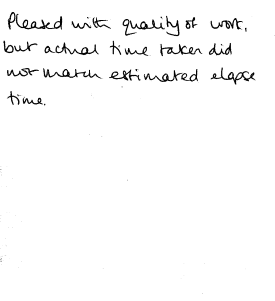 Pleased with quality of work,
but actual time taken did
not match estimated elapse
time.